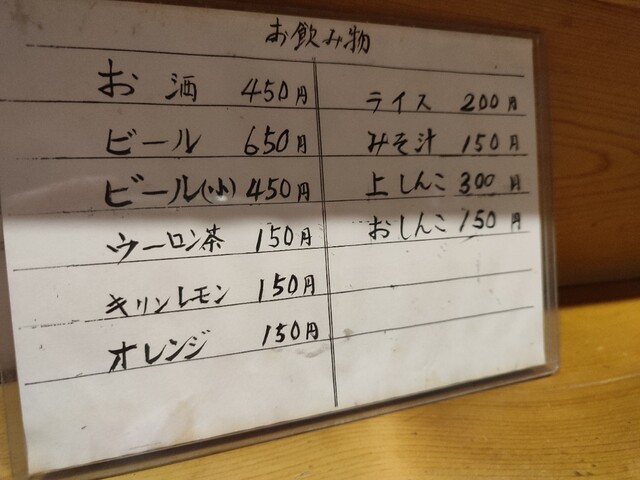 お飲み物
お酒 450円
ビール 650円
ビール(小) 450円
ウーロン茶 150円
キリンレモン 150円
オレンジ 150円
ライス 200円
みそ汁 150円
上しんこ 300円
おしんこ 150円